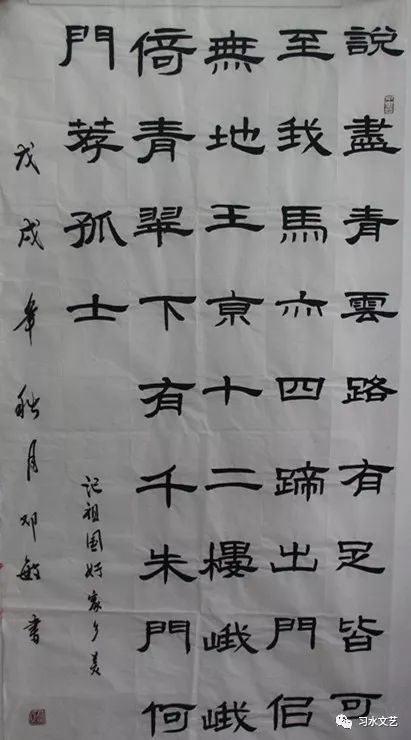 說盡青雲路有足皆可
至我馬亦四蹄出門佀
無地王京十二樓峨峨
倚青翠下有千朱門何
門荐孤士
记祖国好家乡美
戊戌年秋月邓敏書
习水文艺